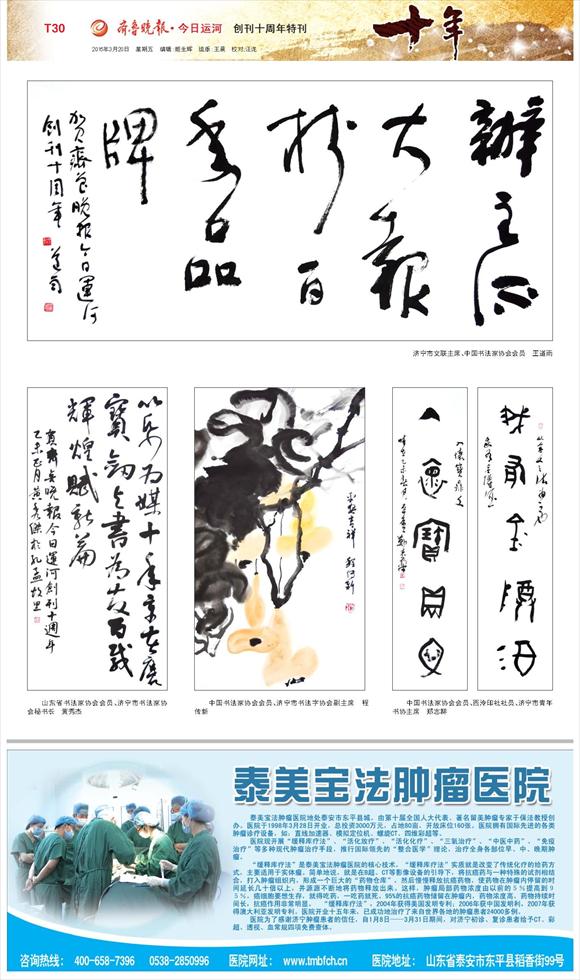 T30
齐鲁晚报·今日运河 创刊十周年特刊
十年
2015年3月20日 星期五
办主流
大报
树百
年品
牌
贺齐鲁晚报今日运河
创刊十周年
济宁市文联主席、中国书法家协会会员 王道雨
辉煌赋新篇
贺齐鲁晚报今日运河创刊十周年
山东省书法家协会会员、济宁市书法家协
会秘书长 黄秀杰
平安吉祥
中国书法家协会会员、济宁市书法字协会副主席 程
传新
中国书法家协会会员、西泠印社社员、济宁市青年
书协主席 郑志群
泰美宝法肿瘤医院
泰美宝法肿瘤医院地处泰安市东平县城，由第十届全国人大代表、著名留美肿瘤专家于保法教授创
办，医院于1998年3月28日开业，总投资3000万元，占地80亩，开放床位160张，医院拥有国际先进的各类
肿瘤诊疗设备，如：直线加速器、模拟定位机、螺旋CT、四维彩超等。
医院现开展“缓释库疗法”、“活化放疗”、“活化化疗”、“三氧治疗”、“中医中药”、“免疫
治疗”等多种现代肿瘤治疗手段，推行国际领先的“整合医学”理论，治疗全身各部位早、中、晚期肿
瘤。
“缓释库疗法”是泰美宝法肿瘤医院的核心技术，“缓释库疗法”实质就是改变了传统化疗的给药方
式，主要适用于实体瘤，简单地说，就是在B超、CT等影像设备的引导下，将抗癌药与一种特殊的试剂相结
合，打入肿瘤组织内，形成一个巨大的“药物仓库”，然后慢慢释放抗癌药物，使药物在肿瘤内停留的时
间延长几十倍以上，并源源不断地将药物释放出来，这样，肿瘤局部药物浓度由以前的5%提高到9
5%，癌细胞要想生存，就得吃药，一吃药就死，95%的抗癌药物储留在肿瘤内，药物浓度高，药物持续时
间长，抗癌作用非常明显。 “缓释库疗法”，2004年获得美国发明专利，2006年获中国发明利，2007年获
得澳大利亚发明专利，医院开业十五年来，已成功地治疗了来自世界各地的肿瘤患者24000多例。
医院为了感谢济宁肿瘤患者的信任，自1月8日——3月31日期间，对济宁初诊、复诊患者给予CT、彩
超、透视、血常规四项免费查体。
咨询热线： 400-658-7396 0538-2850996 医院网址： www.tmbfch.cn 医院地址： 山东省泰安市东平县稻香街99号